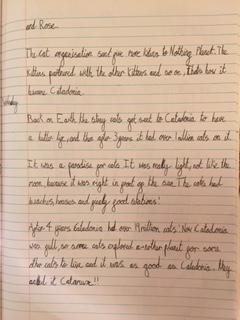 and Rose.
The cat organisation sent five more kittens to Nothing Planet. The
kittens partnered with the other kittens and so on, thats how it
became Catadonia.
Back on Earth the stray cats got sent to Catadonia to have
a better life, and then after 3 years it had over 1 million cats on it.
It was a paradise for cats. It was really light, not like the
moon, because it was right in front of the sun. The cats had
beaches, houses and party food stations!
After 4 years Catadonia had over 19 million cats. Now Catadonia
was full, so some cats explored a-nother planet for some
other cats to live and it was as good as Catadonia. They
called it